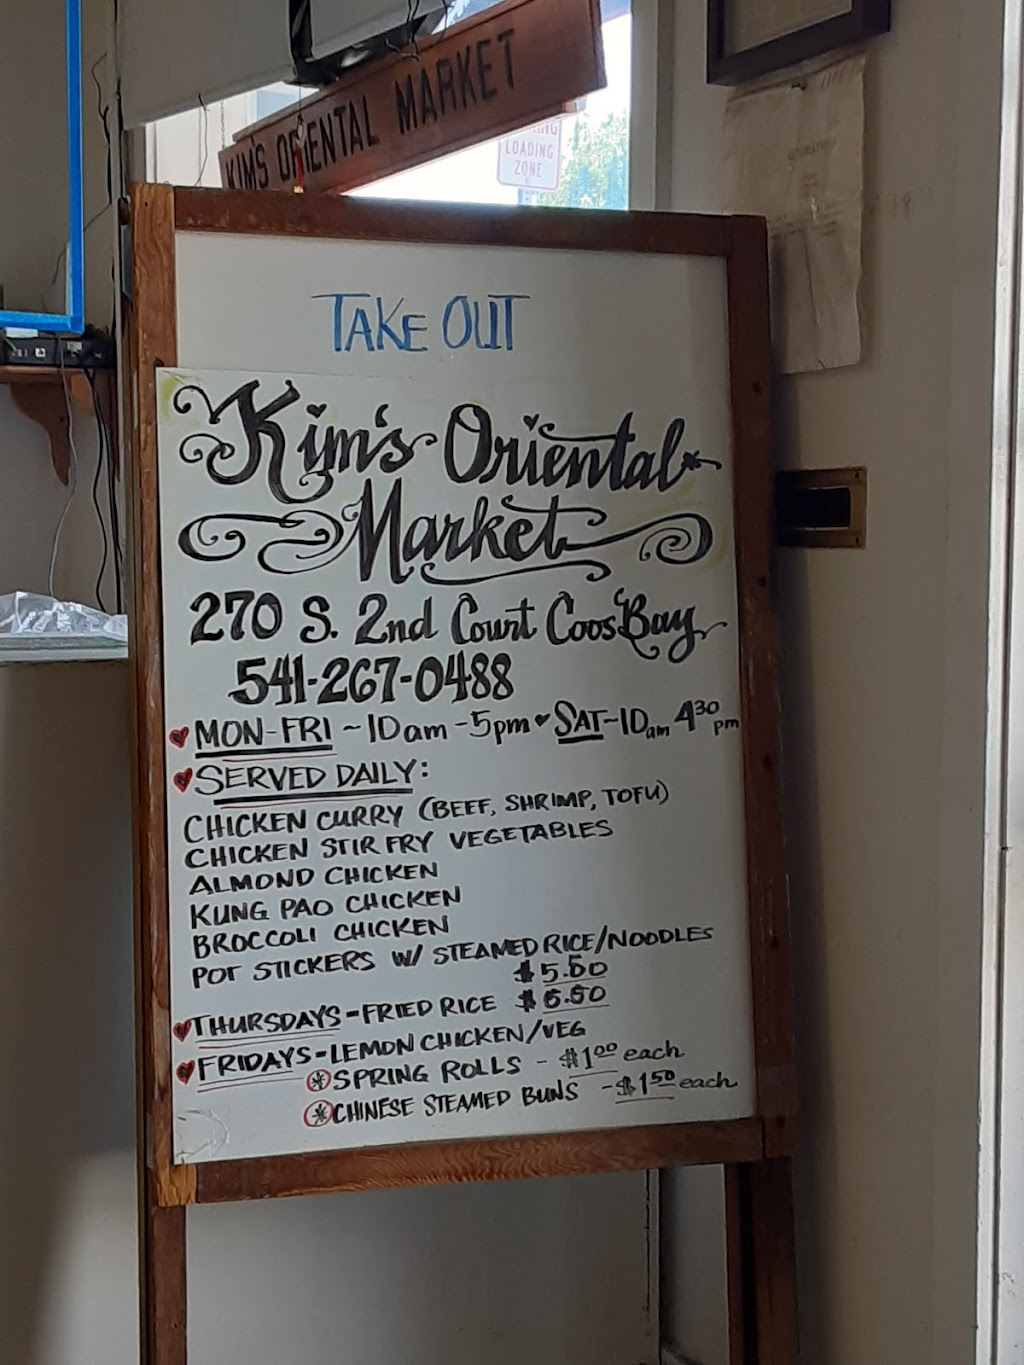 KIM'S ORIENTAL MARKET
LOADING
ZONE
TAKE OUT
Kim's Oriental
Market
270 S. 2nd Court Coos Bay
541-267-0488
MON-FRI ~10am-5pm SAT~10am 430 pm
SERVED DAILY:
CHICKEN CURRY (BEEF, SHRIMP, TOFU)
CHICKEN STIR FRY VEGETABLES
ALMOND CHICKEN
KUNG PAO CHICKEN
BROCCOLI CHICKEN
POT STICKERS W/ STEAMED RICE/NOODLES
$5.50
THURSDAYS-FRIED RICE $6.50
FRIDAYS-LEMON CHICKEN/VEG
SPRING ROLLS - $1.00 each
CHINESE STEAMED BUNS - $1.50 each